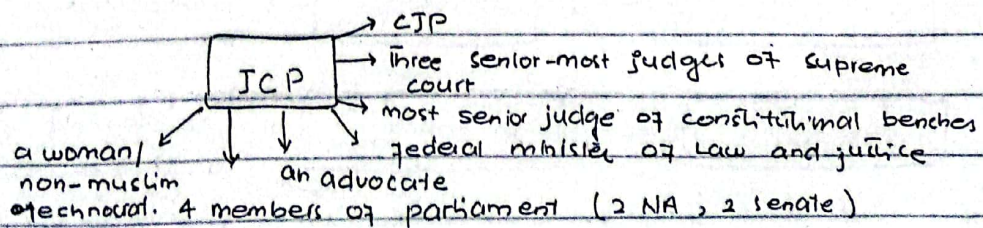 CJP
Three senior-most judges of supreme
court
JCP
most senior judge of constitutional benches
federal minister of Law and justice
a woman/
non-muslim
technocrat.
an advocate
4 members of parliament (2 NA, 2 senate)